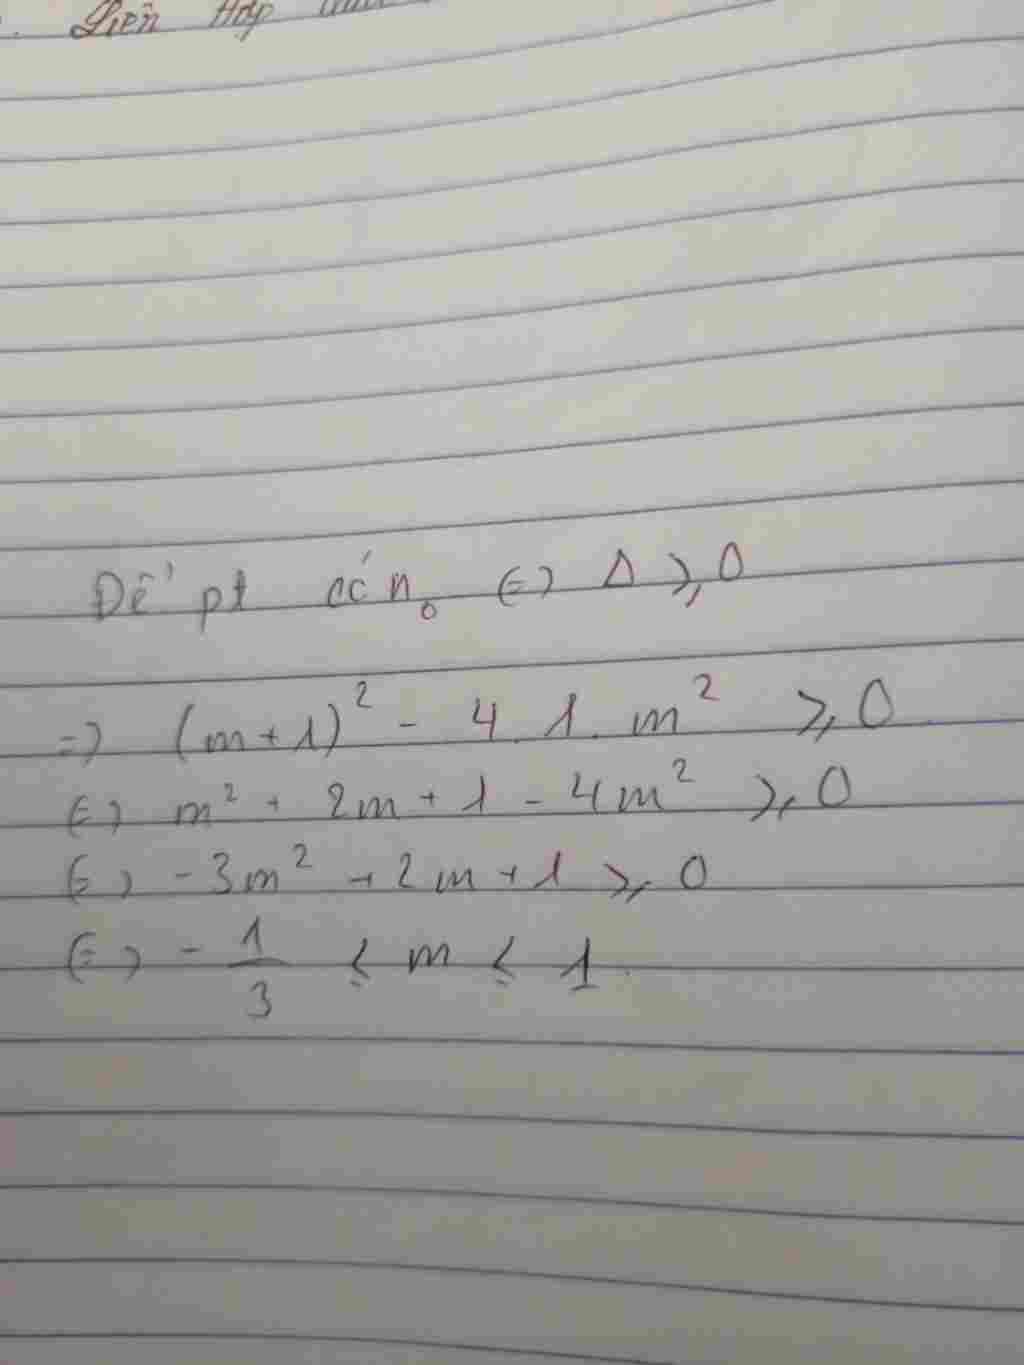 Liên Hợp
Để pt có n₀ (=) Δ ≥ 0
=) (m+1)² - 4.1.m² ≥ 0
(=) m² + 2m + 1 - 4m² ≥ 0
(=) -3m² + 2m + 1 ≥ 0
(=) -1/3 ≤ m ≤ 1